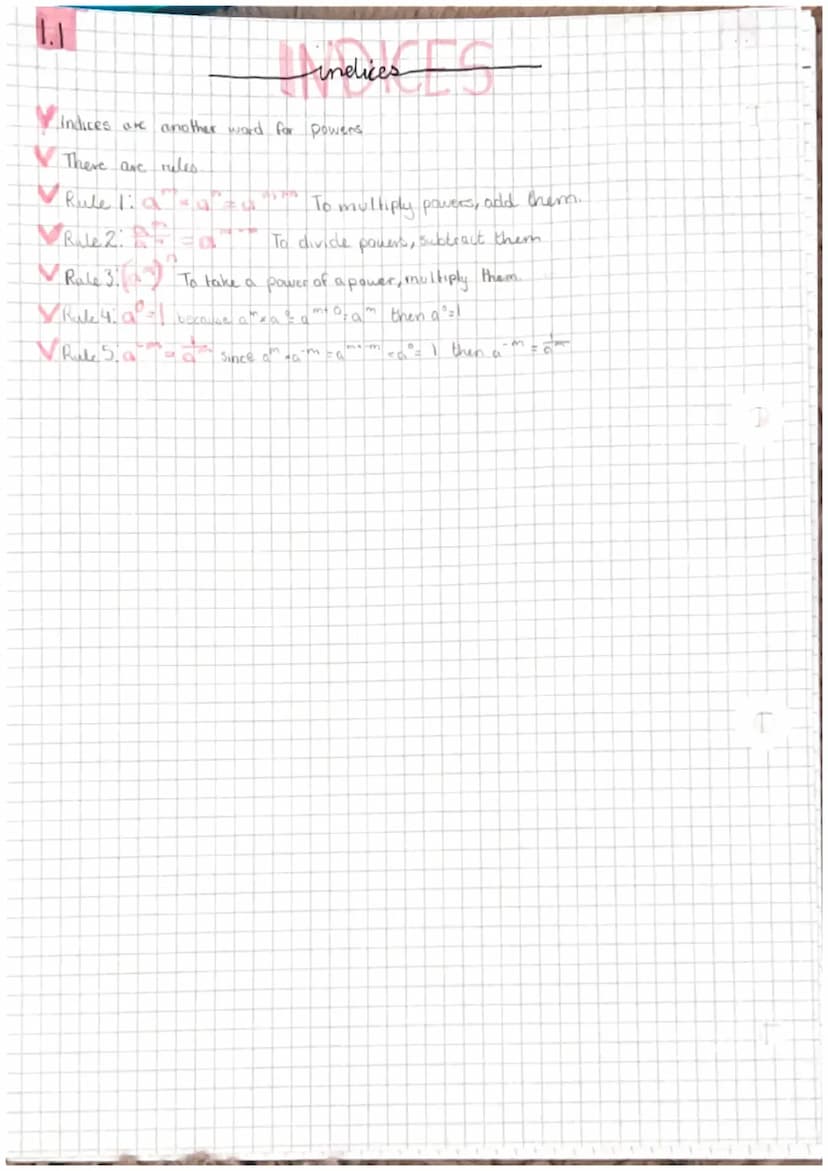 1.1
INDICES
indices
Indices are another word for powers
There are rules
Rule 1: To multiply powers, add them.
Rule 2: To divide powers, subtract them
Rule 3: To take a power of a power, multiply them.
Rule 4: a⁰=1 because aᵐ×a⁰=aᵐ⁺⁰=aᵐ then a⁰=1
Rule 5: a⁻ᵐ = 1/aᵐ since aᵐ×a⁻ᵐ=aᵐ⁺⁻ᵐ=a⁰=1 then a⁻ᵐ=1/aᵐ